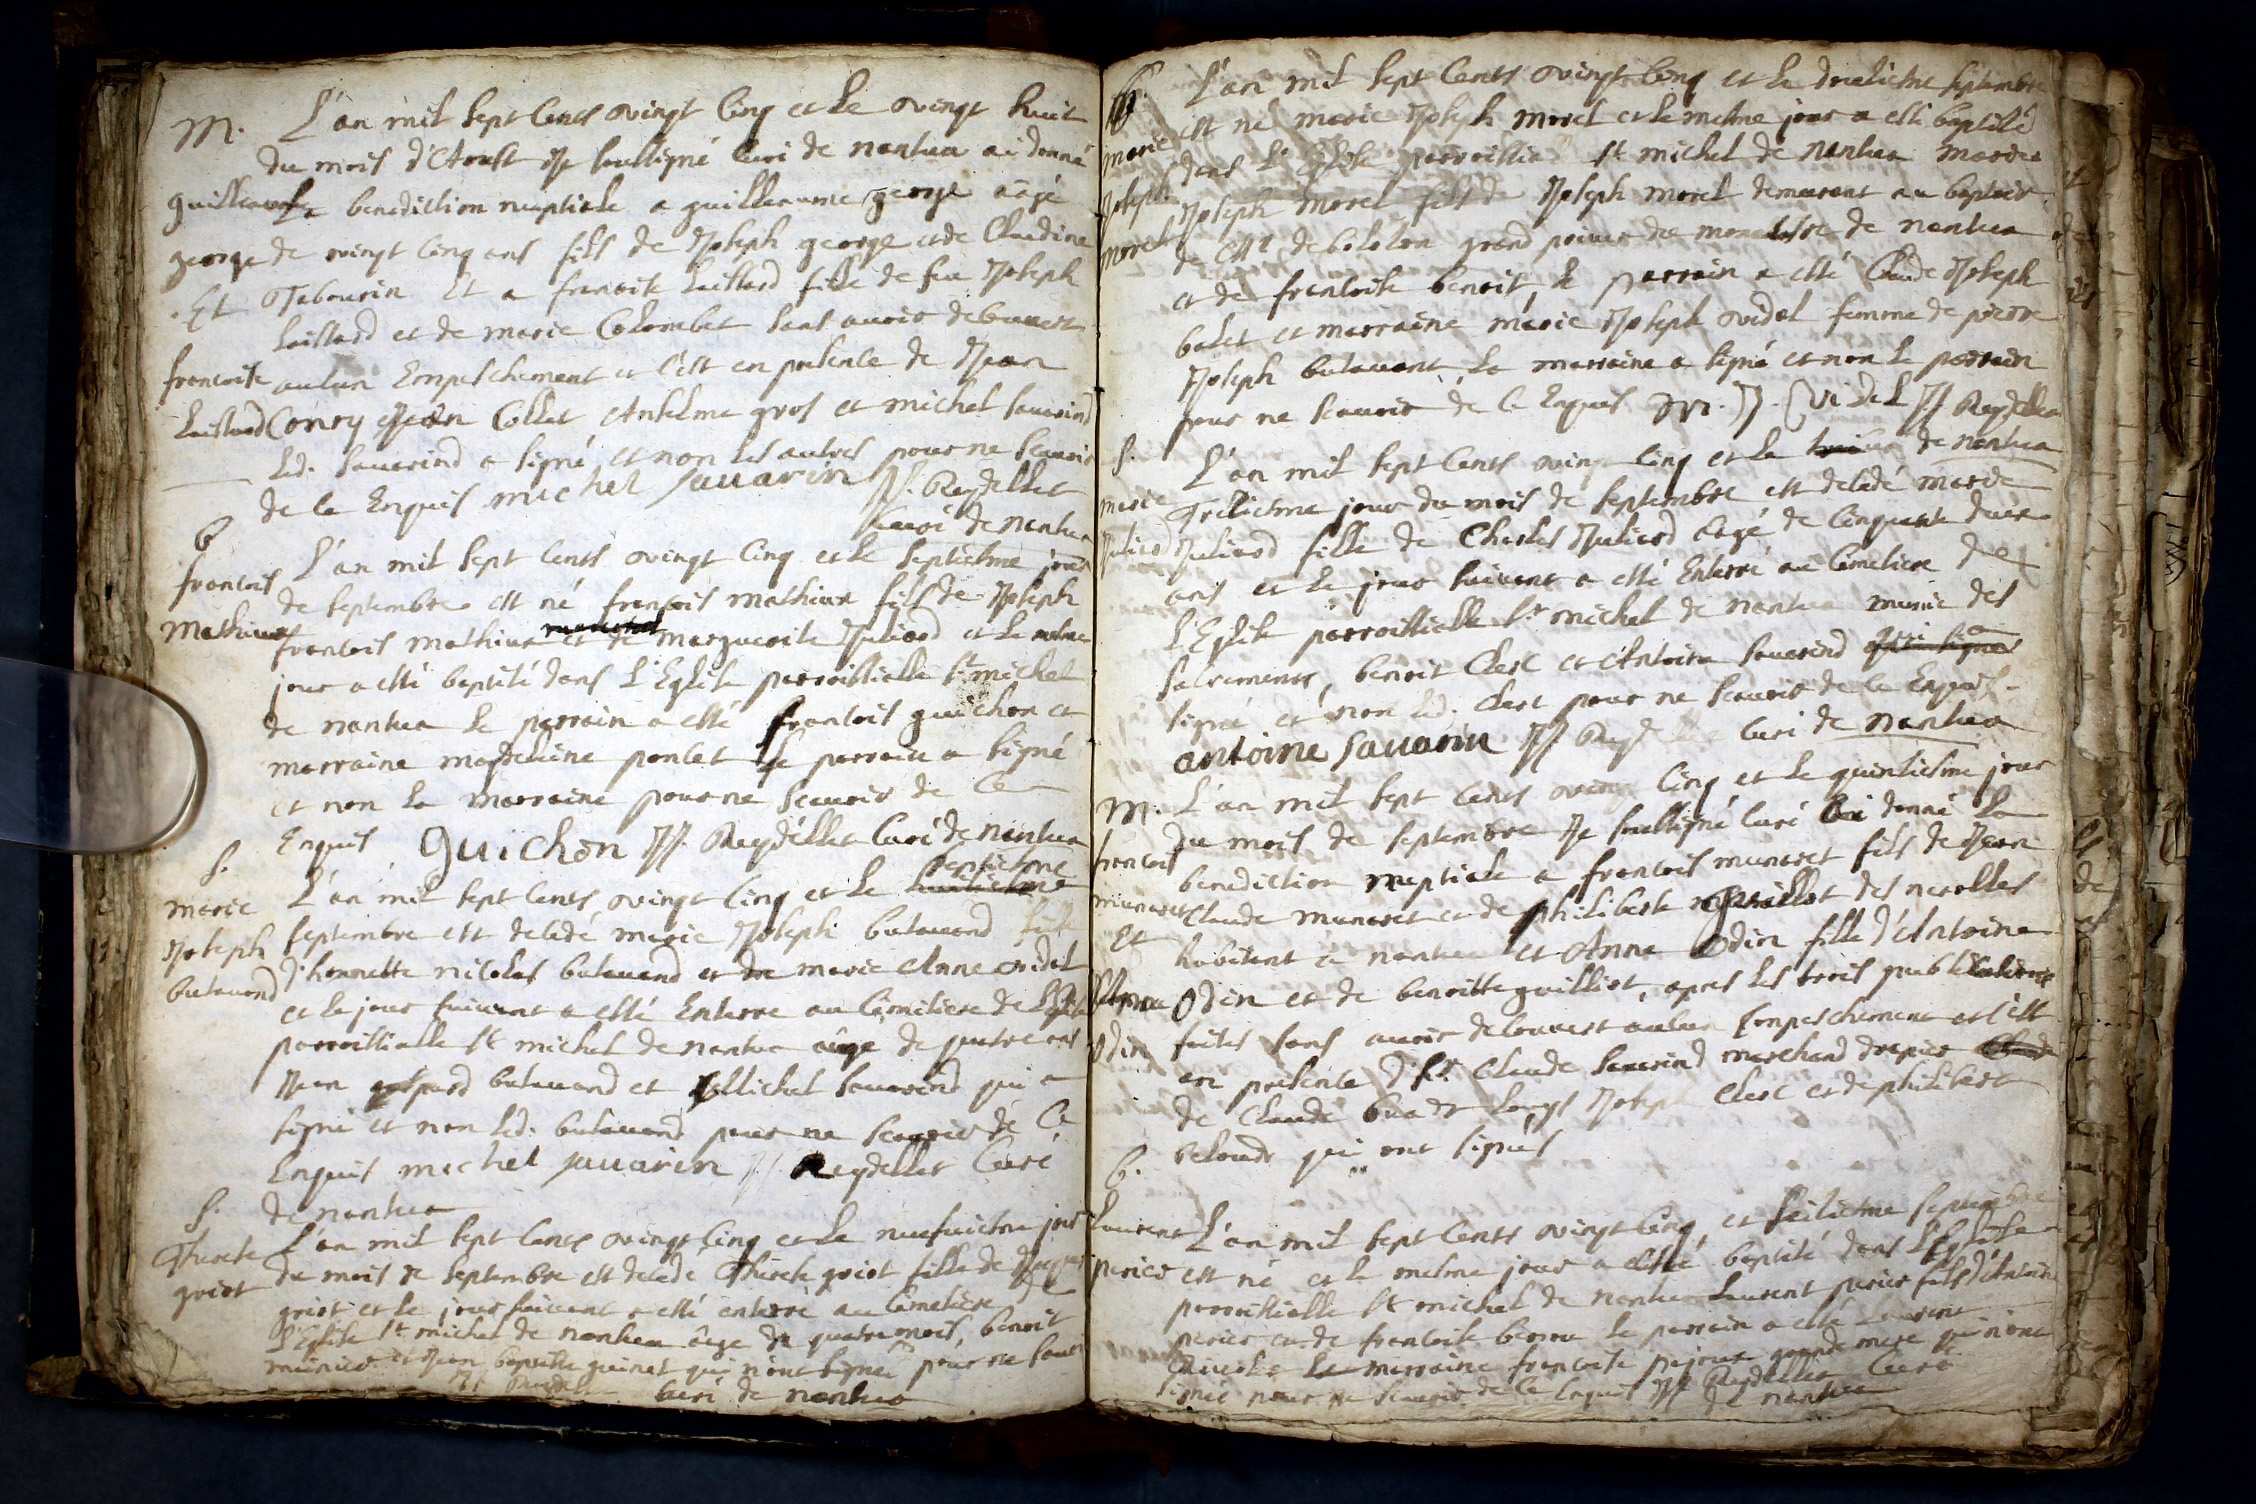 M.
L'an mil sept cents vingt cinq et le vingt huit
du mois d'Aoust Je soussigné curé de nantua ai donné
guillaume
la benediction nuptiale a guilleaume george aagé
george
de vingt cinq ans fils de Joseph george et de Claudine
Et
Tabourin Et a francoise saillard fille de feu Joseph
saillard et de marie Colombet sans avoir decouvert
francoise
aucun Empeschement et c'est en presence de Jean
saillard
Conry Jean Collet Anselme gros et michel sauarind
led. sauarind a signé et non les autres pour ne scavoir
de ce Enquis michel sauarin JJ. Reydellet
Curé de nantua
B
francois
Mathieux
L'an mil sept cents vingt cinq et le septiesme jour
de septembre est né francois mathieux fils de Joseph
francois mathieux et de marguerite Juliard et le mesme
jour a esté baptisé dans L'Eglise parroissialle st michel
de nantua le parrain a esté francois guichon et
marraine magdelaine poncet le parrain a signé
et non la marraine pour ne scavoir de ce
Enquis guichon JJ. Reydellet Curé de nantua
S.
marie
Joseph
butauand
L'an mil sept cents vingt cinq et le septiesme
septembre est decedé marie Joseph butauand fille
d'honnette nicolas butauand et de marie Anne vidal
et le jour suivant a esté Enterre au Cimitiere de l'Eglise
parroissialle st michel de nantua âuge de quatre ans
Jean gaspard butauand et Michel sauarind qui a
signé et non led. butauand pour ne scavoir de Ce
Enquis michel sauarin JJ Reydellet Curé
de nantua
S.
Therese
griot
L'an mil sept cents vingt cinq et le neufuiesme jour
du mois de septembre est decedé Therese griot fille de Jacques
griot et le jour suivant a esté enterré au Cimetiere de
L'Eglise st. michel de nantua âuge de quatre mois, benoit
munier et Jean baptiste guinet qui n'ont signé pour ne scavoir
JJ Reydellet curé de nantua
B.
marie
Joseph
morel
L'an mil sept cents vingt cinq et le douziesme septembre
est né marie Joseph morel et le mesme jour a esté baptisé
dans L'Eglise parroissialle st michel de nantua marie
Joseph morel fille de Joseph morel demeurant au
de Mr de grand prieur du monastere de nantua
et de francoise benoit, le parrain a esté Claude Joseph
balet et marraine marie Joseph vidal femme de pierre
Joseph butauant la marraine a signé et non le parrain
pour ne scavoir de ce Enquis M. J. Vidal JJ Reydellet
curé de nantua
S.
marie
Juliard
L'an mil sept cents vingt cinq et le
Treiziesme jour du mois de septembre est decedé marie
Juliard fille de Charles Juliard aagé de cinquante deux
ans et le jour suivant a esté Enterré au Cimetiere de
L'Eglise parroissialle st michel de nantua munie des
sacrements, benoit Clerc et Antoine sauarind qui a
signé et non led. Clerc pour ne scavoir de ce Enquis
antoine sauarin JJ. Reydellet Curé de nantua
M.
francois
munaret
Et
Anne
Odin
L'an mil sept cents vingt cinq et le quinziesme jour
du mois de septembre Je soussigné Curé ai donné la
benediction nuptiale a francois munaret fils de Jean
Claude munaret et de philiberte des nerolles
habitant a nantua et Anne Odin fille d'Antoine
Odin et de benoitte guilliot, apres les trois publications
faites sans avoir decouvert aucun Empeschement et c'est
en presence d'sr. Claude sauarind marchand drapier
de Claude Joseph Clerc et de philibert
belouds qui ont signés
B.
Laurent
perier
L'an mil sept cents vingt cinq, et seiziesme septembre
est né et le mesme jour a esté baptisé dans L'Eglise
parroissialle st michel de nantua Laurent perier fils d'Antoine
perier et de francoise le parrain a esté Laurent
la marraine francoise pajour grande mere qui n'ont
signé pour ne scavoir de ce Enquis JJ Reydellet Curé
de nantua